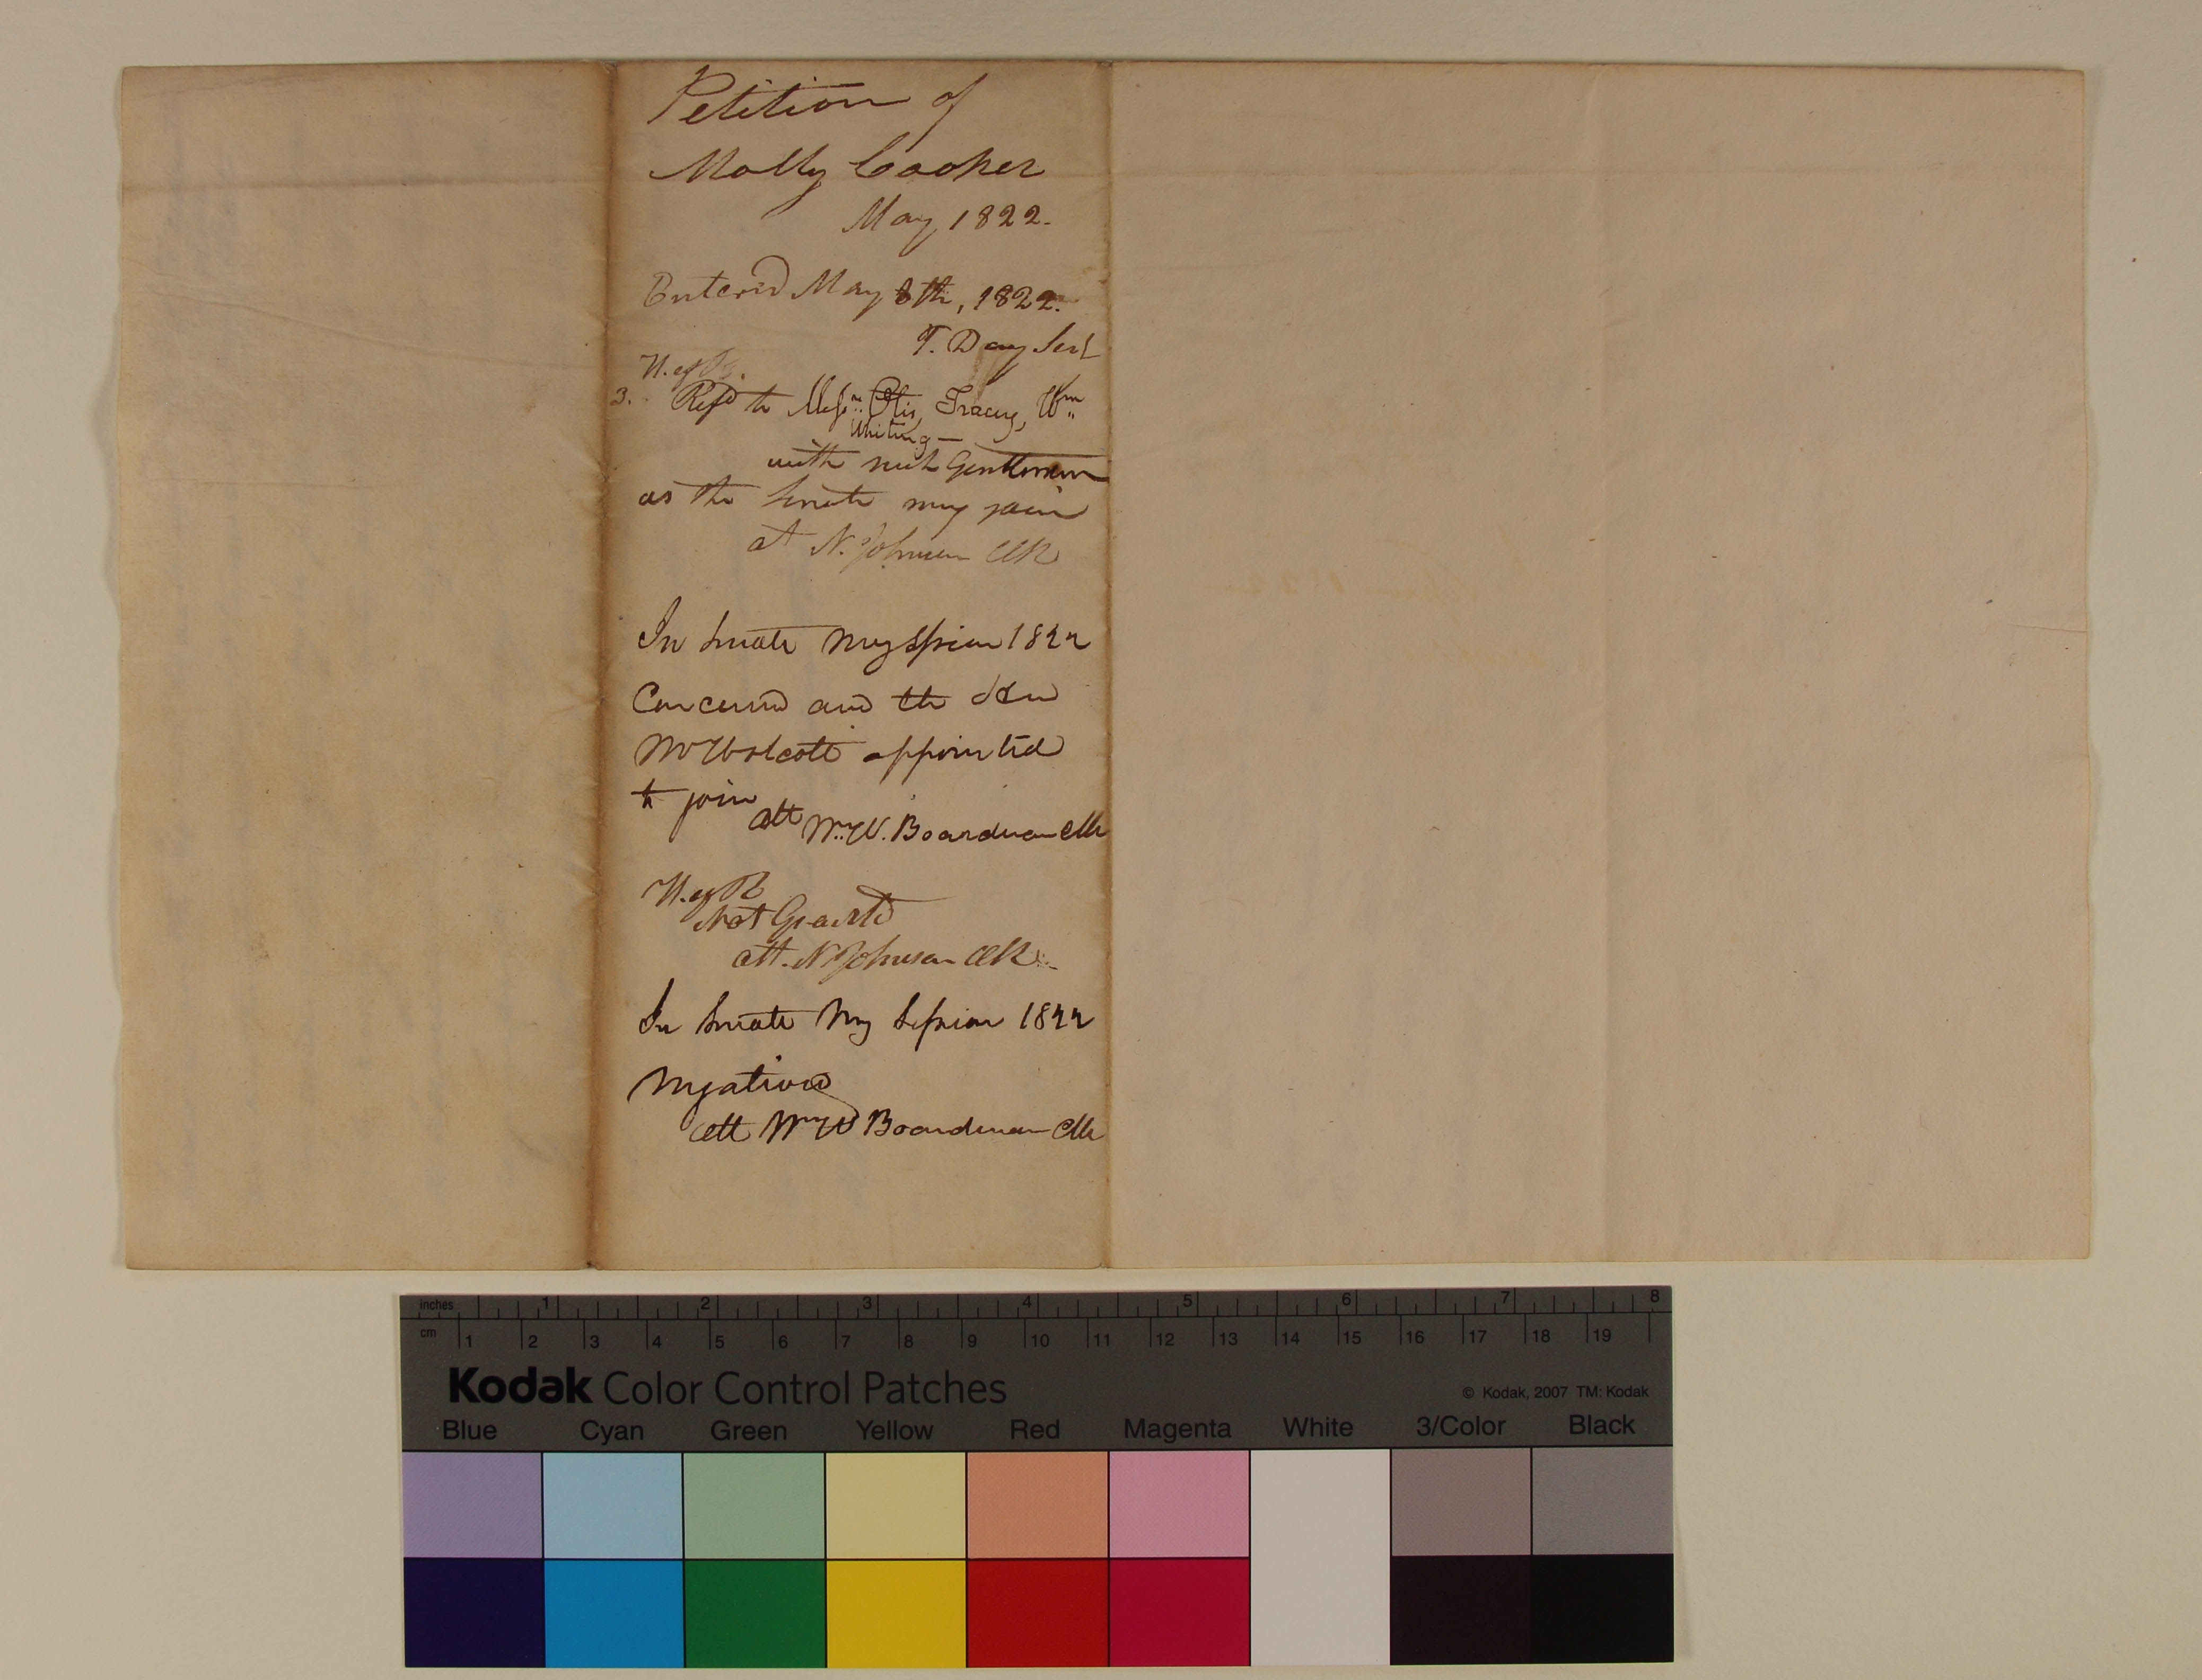 Petition of
Molly Cooher
May 1822.
Enterd May 8th, 1822.
T. Day Secy
H. of R.
3. Refd to Messrs. Otis, Tracey, Wm.
Whiting —
with such Gentlemen
as the Senate may join
att N. Johnson Clk
In Senate May Session 1822
Concurred and the Hon
Mr Wolcott appointed
to join
att Wm. W. Boardman Clk
H. of R
Not Granted
att. N Johnson Clk
In Senate May Session 1822
Negatived
att Wm W Boardman Clk
inches 1 2 3 4 5 6 7 8
cm 1 2 3 4 5 6 7 8 9 10 11 12 13 14 15 16 17 18 19
Kodak Color Control Patches
© Kodak, 2007 TM: Kodak
Blue Cyan Green Yellow Red Magenta White 3/Color Black